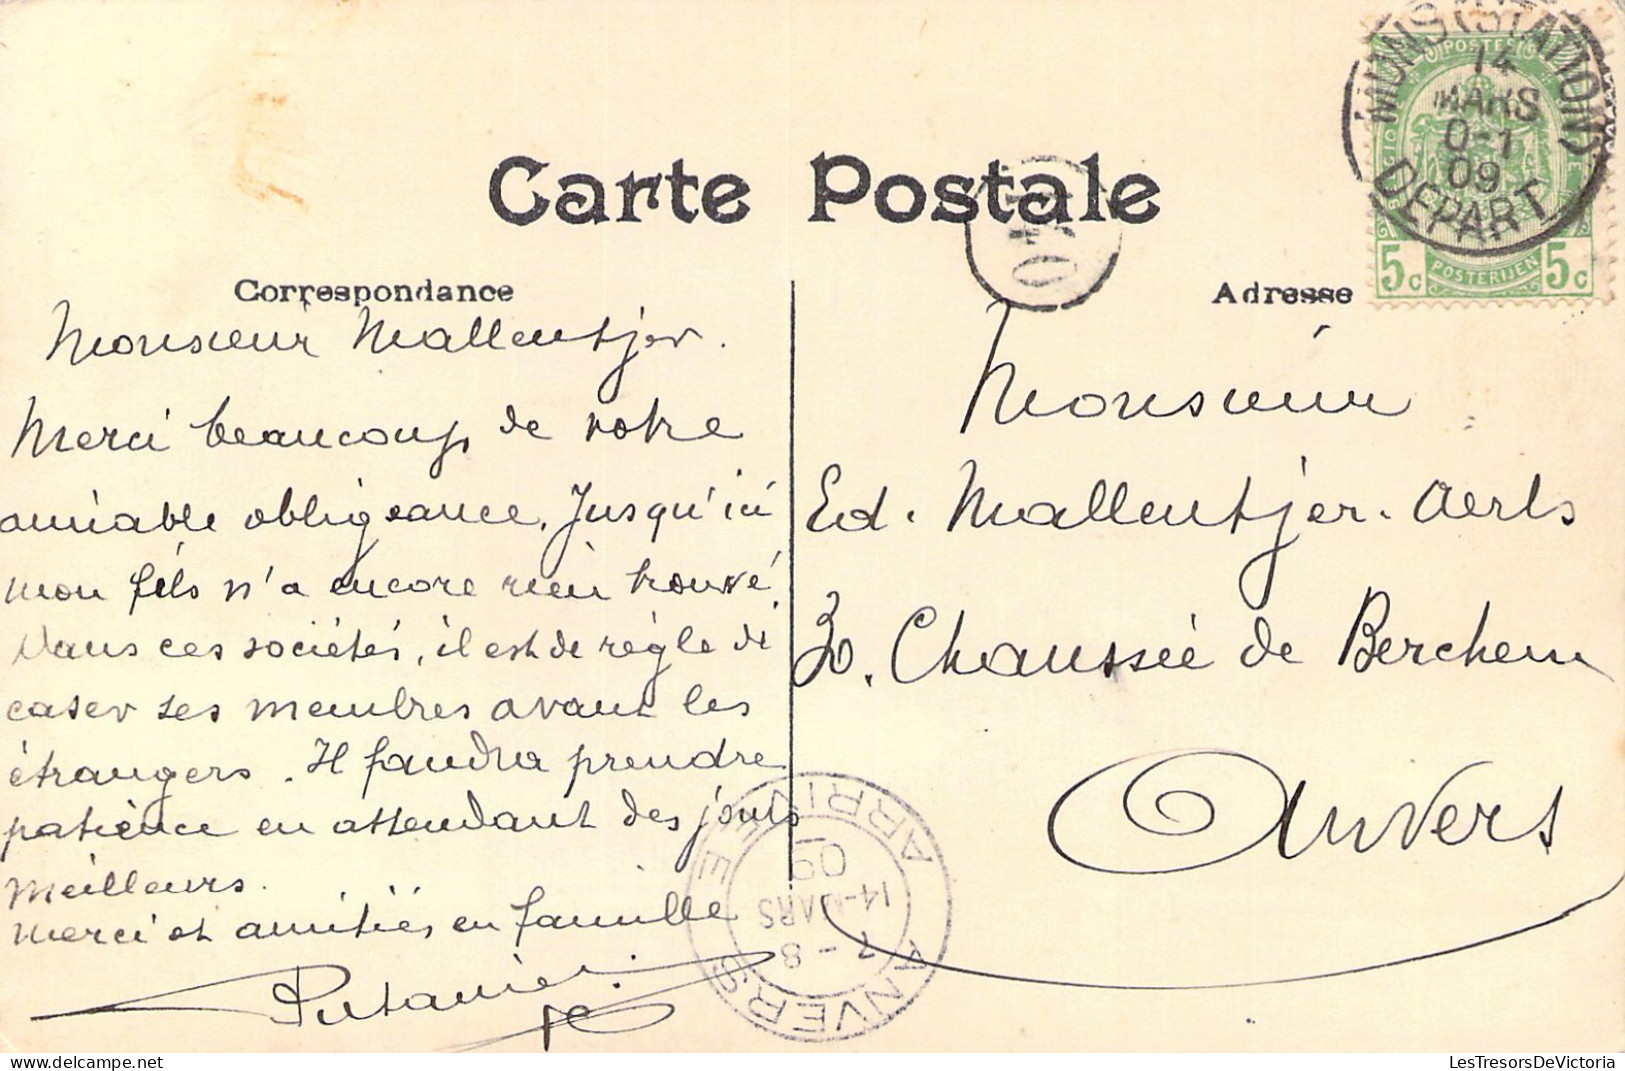 Carte Postale
Correspondance
Monsieur Mallentjer.
Merci beaucoup de votre
amiable obligeance. Jusqu'ici
mon fils n'a encore rien trouvé.
Dans ces sociétés, il est de règle de
caser ses membres avant les
étrangers. Il faudra prendre
patience en attendant des jours
meilleurs.
Merci et amitiés en famille
Adresse
Monsieur
Ed. Mallentjer-Aerts
30. Chaussée de Berchem
Anvers
MONS (STATION)
14
MARS
0-1
09
DEPART
POSTES
5c POSTERIJEN 5c
ANVERS
7-8
14-MARS
09
ARRIVEE
LesTresorsDeVictoria